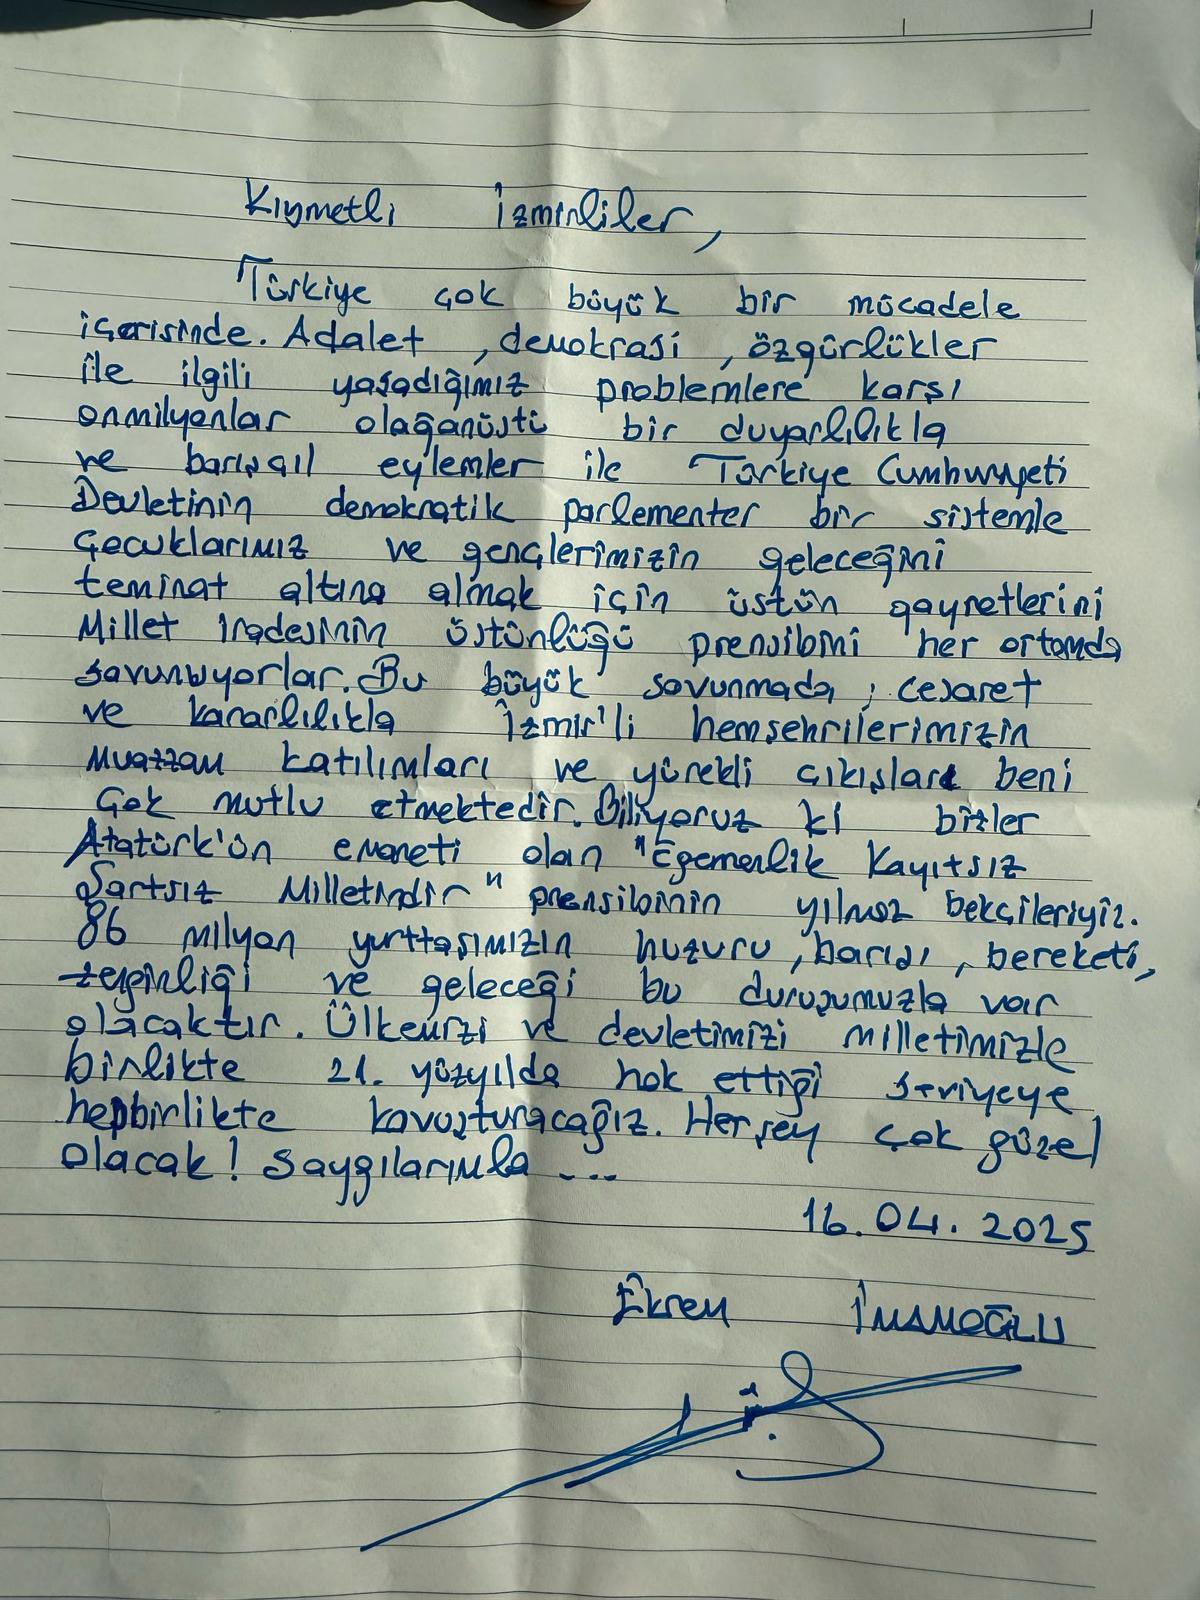 Kıymetli İzmirliler,
Türkiye çok büyük bir mücadele
içerisinde. Adalet, demokrasi, özgürlükler
ile ilgili yaşadığımız problemlere karşı
onmilyonlar olağanüstü bir duyarlılıkla
ve barışçıl eylemler ile Türkiye Cumhuriyeti
Devletinin demokratik parlementer bir sistemle
Çocuklarımız ve gençlerimizin geleceğini
teminat altına almak için üstün gayretlerini
Millet iradesinin üstünlüğü prensibini her ortamda
savunuyorlar. Bu büyük savunmada, cesaret
ve kararlılıkla İzmir'li hemşehrilerimizin
muazzam katılımları ve yürekli çıkışları beni
Çok mutlu etmektedir. Biliyoruz ki bizler
Atatürk'ün emaneti olan "Egemenlik Kayıtsız
Şartsız Milletindir" prensibinin yılmaz bekçileriyiz.
86 milyon yurttaşımızın huzuru, barışı, bereketi,
zenginliği ve geleceği bu duruşumuzla var
olacaktır. Ülkemizi ve devletimizi milletimizle
birlikte 21. yüzyılda hak ettiği seviyeye
hepbirlikte kavuşturacağız. Herşey çok güzel
olacak! Saygılarımla ....
16.04.2025
Ekrem İMAMOĞLU